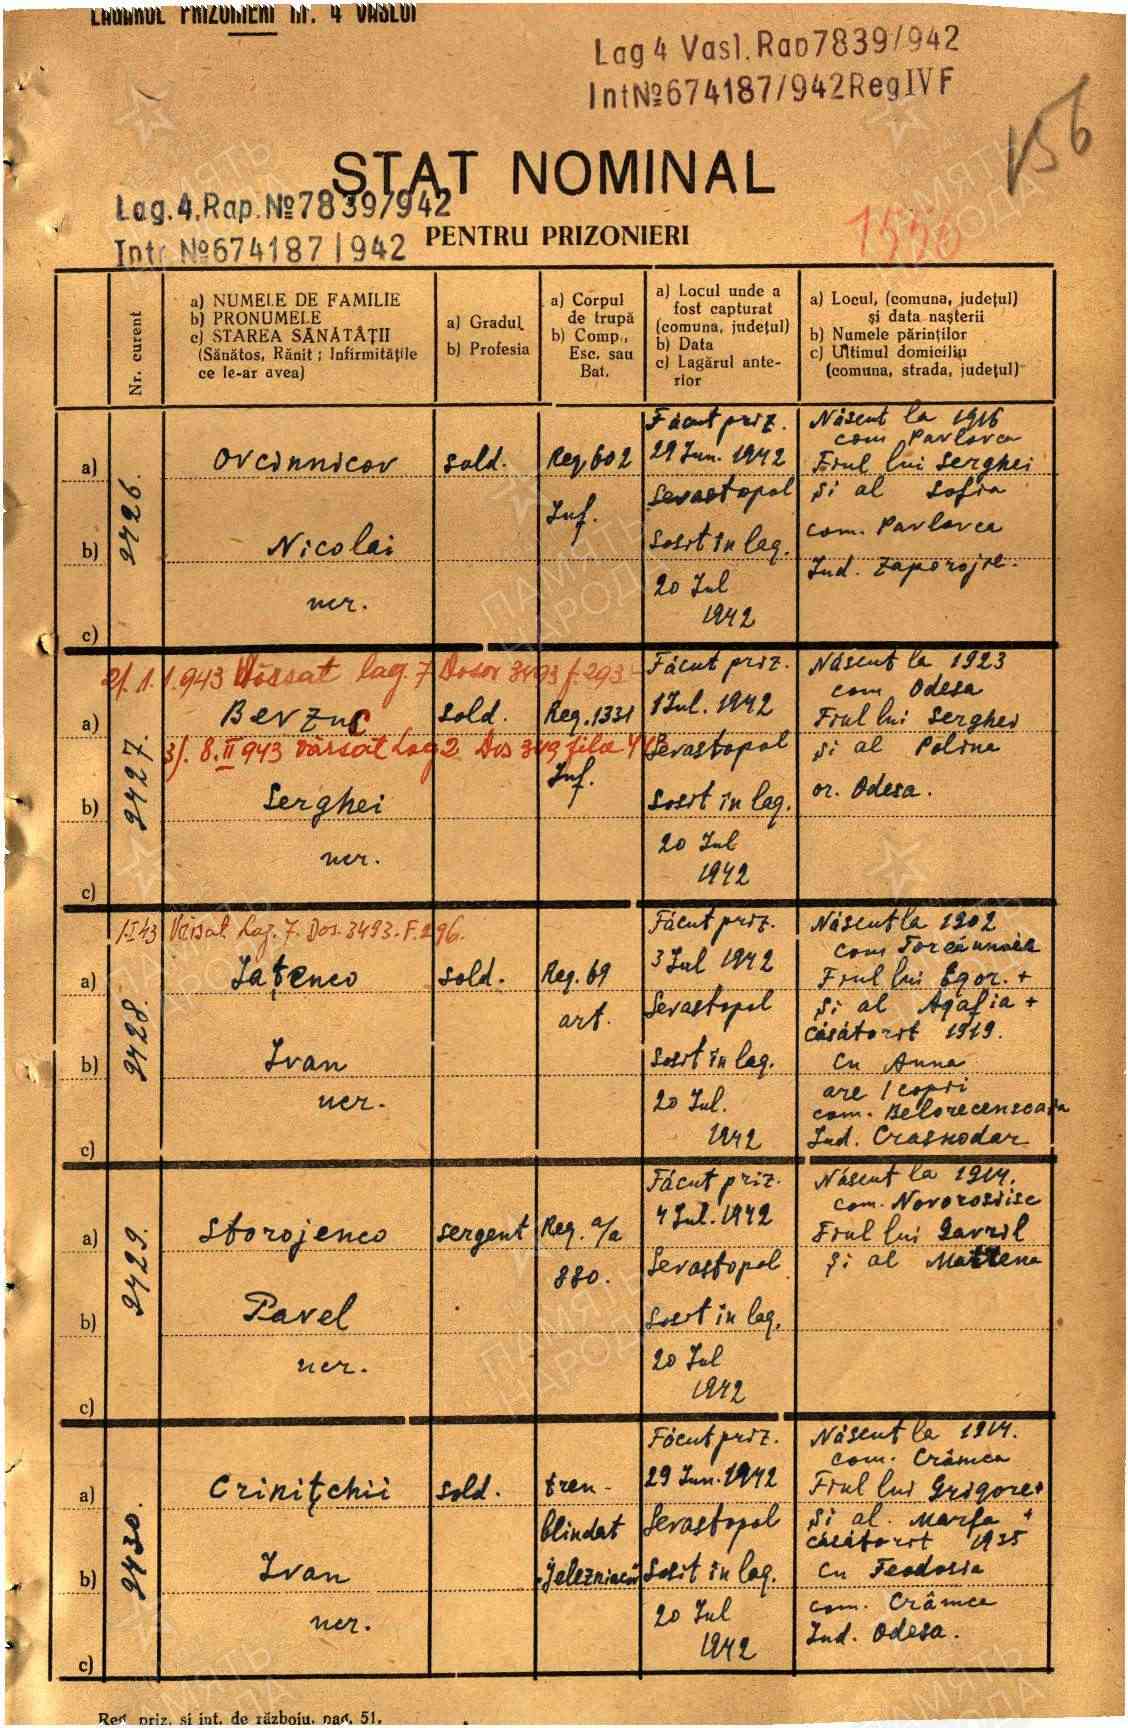 LAGĂRUL PRIZONIERI nr. 4 VASLUI
Lag 4 Vasl. Rap 7839/942
Int№674187/942 Reg IV F
156
STAT NOMINAL
Lag. 4. Rap. №7839/942
PENTRU PRIZONIERI
Intr. №674187/942
1556
Nr. curent
a) NUMELE DE FAMILIE
b) PRONUMELE
c) STAREA SĂNĂTĂȚII
(Sănătos, Rănit ; Infirmitățile
ce le-ar avea)
a) Gradul
b) Profesia
a) Corpul
de trupă
b) Comp.,
Esc. sau
Bat.
a) Locul unde a
fost capturat
(comuna, județul)
b) Data
c) Lagărul ante-
rior
a) Locul, (comuna, județul)
și data nașterii
b) Numele părinților
c) Ultimul domiciliu
(comuna, strada, județul)
2426.
a)
b)
c)
Ovcinnicov
Nicolai
ner.
sold.
Reg. 602
Inf.
Făcut priz.
29 Iun. 1942
Sevastopol
Sosit în lag.
20 Iul
1942
Născut la 1916
com Pavlovca
Fiul lui Serghei
și al Sofia
com. Pavlovca
Jud. Zaporojie.
2/. 1.1.943 Vărsat lag. 7 Dosar 3493 f. 293.
2427.
a)
b)
c)
Berzuc
3/. 8.II 943 vărsat Lag 2 Dos 349 fila
Serghei
ner.
sold.
Reg. 1331
Inf.
Făcut priz.
1 Iul. 1942
Sevastopol
Sosit în lag.
20 Iul
1942
Născut la 1923
com Odesa
Fiul lui Serghei
și al Polina
or. Odesa.
1.I.43 Vărsat Lag. 7. Dos. 3493. F. 296.
2428.
a)
b)
c)
Iațenco
Ivan
ner.
sold.
Reg. 69
art.
Făcut priz.
3 Iul 1942
Sevastopol
Sosit în lag.
20 Iul.
1942
Născut la 1902
com
Fiul lui Egor. +
și al Agafia +
căsătorit 1919.
cu Anna
are 1 copri
com. Belorecenscaia
Jud. Crasnodar
2429.
a)
b)
c)
Storojenco
Pavel
ner.
sergent
Reg. a/a
880.
Făcut priz.
4 Iul. 1942
Sevastopol
Sosit în lag.
20 Iul
1942
Născut la 1914.
com. Novorosiisc
Fiul lui Gavril
și al Matrena
2430.
a)
b)
c)
Crinițchii
Ivan
ner.
sold.
tren-
blindat
Făcut priz.
29 Iun. 1942
Sevastopol
Sosit în lag.
20 Iul
1942
Născut la 1914.
com. Crâmca
Fiul lui Grigore +
și al. Marfa +
căsătorit 1935
cu Feodosia
com. Crâmca
Jud. Odesa.
Reg. priz. și int. de războiu, pag. 51.
ПАМЯТЬ
НАРОДА